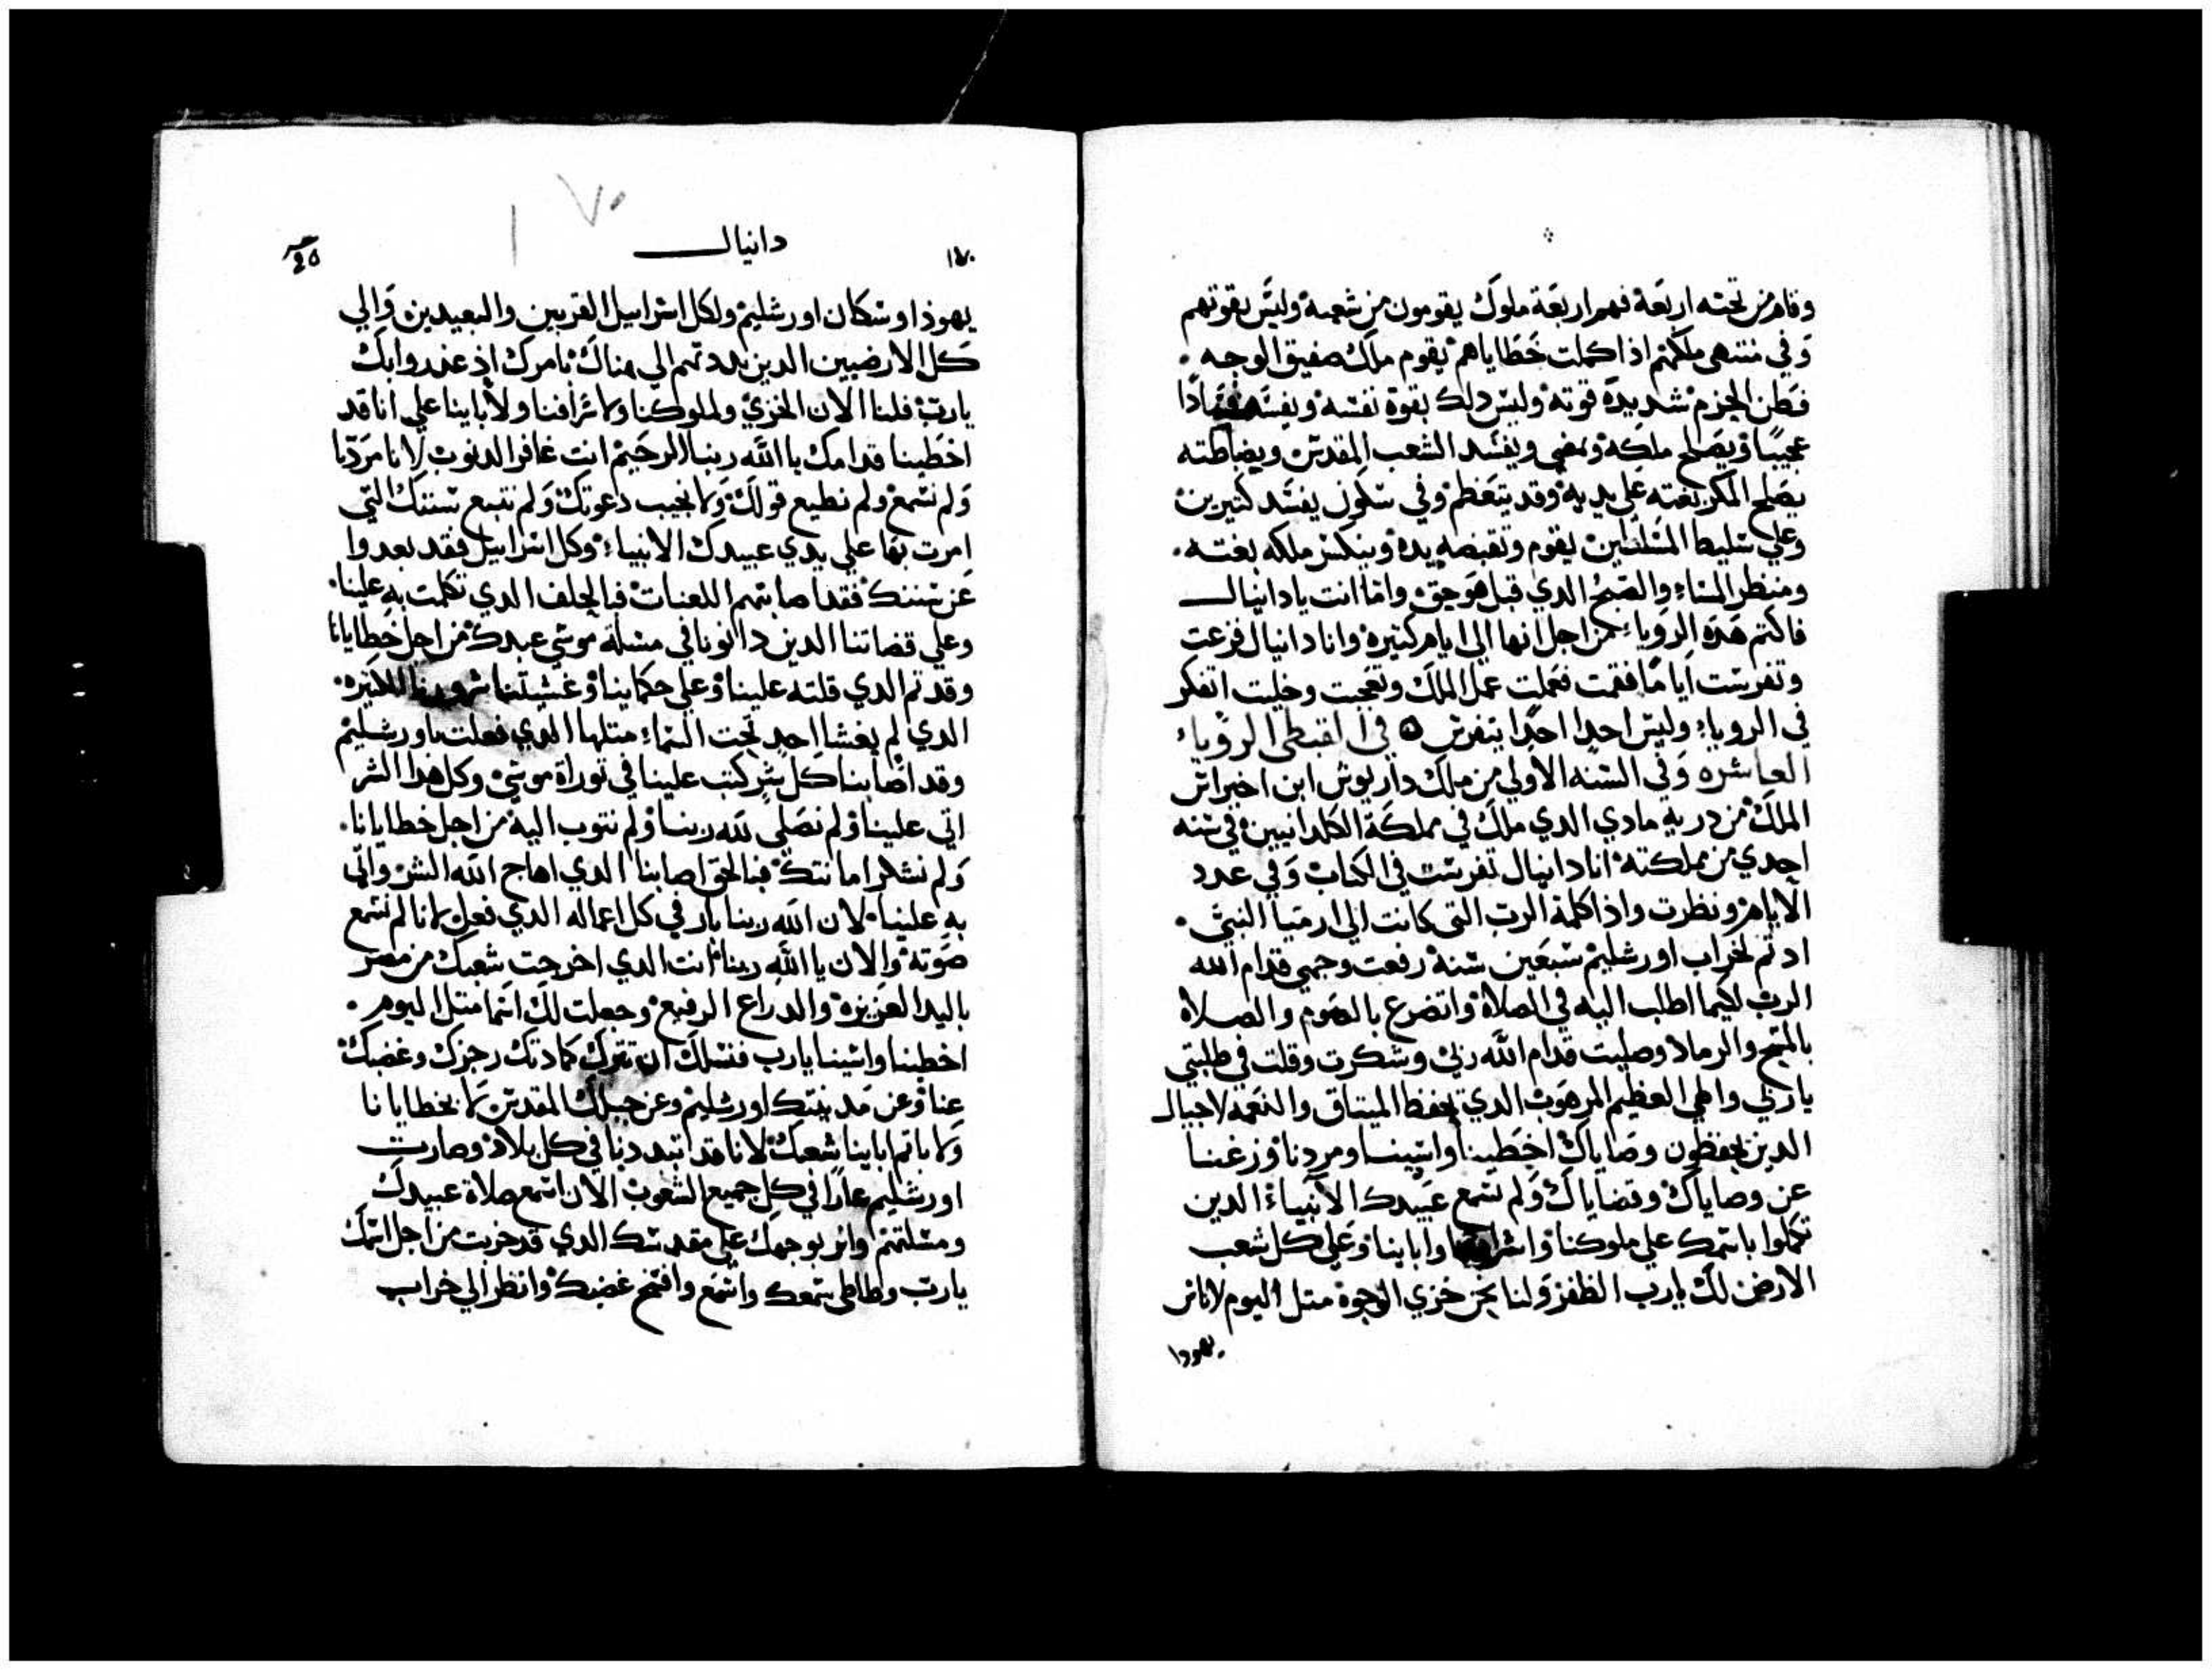 وقام من تحته اربعة فهم اربعة ملوك يقومون من شعبه وليس بقوتهم
وفي منتهى ملكهم اذا كملت خطاياهم يقوم ملك صفيق الوجه
فطن الحزم شديدة قوته وليس دلك بقوة نفسه ويفسد فسادا
عجيبا ويصلح ملكه ويمضي ويفسد الشعب المقدس ويضاطته
يصلح المكر بغته على يديه وقد يتعظم وفي سكون يفسد كتيرين
وعلي سليط المسلطين يقوم وتقبضه يده وينكسر ملكه بغته
ومنظر المساء والصبح الدي قبل هو حق واما انت يا دانيال
فاكتم هده الرويا من اجل انها الى ايام كتيرة وانا دانيال فزعت
وتفرست اياما فقمت فعملت عمل الملك وتعجبت وخليت اتفكر
في الرويا وليس احدا احدا يتفرس في القبطي الرويا
العاشره وفي السنه الاولي من ملك داريوش ابن اخيراش
الملك من دريه مادي الدي ملك في مملكة الكلدانيين في سنه
احدي من مملكته انا دانيال تفرست في الكتاب وفي عدد
الايام ونظرت واذا كلمة الرب التي كانت الي ارميا النبي
اد تم لخراب اورشليم سبعين سنة رفعت وجهي قدام الله
الرب لكيما اطلب اليه في الصلاة واتضرع بالصوم والصلاه
بالمسح والرماد وصليت قدام الله ربي وشكرت وقلت في طلبتي
يا ربي والهي العظيم المرهوب الدي تحفظ الميتاق والنعمه لاجيال
الدين يحفظون وصاياك اخطينا واسينا ومردنا وزغنا
عن وصاياك وقضاياك ولم نسمع عبيدك الانبياء الدين
تكلموا باسمك علي ملوكنا واشرافنا وابائنا وعلى كل شعب
الارض لك يارب الظفر ولنا نحن خزي الوجوة متل اليوم لاناس
يهودا
١٧٠
دانيال
يهوذا وسكان اورشليم ولكل اسراييل القريبين والبعيدين والي
كل الارضيين الدين بددتهم الي هناك بامرك اذ غدروا بك
يارب فلنا الان الخزي ولملوكنا ولاشرافنا ولابائنا علي انا قد
اخطينا قدامك يا الله ربنا الرحيم انت غافر الدنوب لانا مردنا
ولم نسمع ولم نطيع قولك ولا نجيب دعوتك ولم نتبع سننك التي
امرت بها علي يدي عبيدك الانبياء وكل اسراييل فقد بعدوا
عن سننك فقد اصابتهم اللعنات فبالحلف الدي تكلمت به علينا
وعلي قضاتنا الدين دانونا في مسلة موسي عبدك من اجل خطايانا
وقد تم الدي قلته علينا وعلي حكامنا وغشيتنا
الدي لم يغشا احد تحت السماء متلها الدي فعلت باورشليم
وقد اصابنا كل شر كتب علينا في توراة موسي وكل هدا الشر
اتي علينا ولم نصلي لله ربنا ولم نتوب اليه من اجل خطايانا
ولم نشكر امانتك فبالحق اصابنا الدي اهاج الله الشر واتي
به علينا لان الله ربنا بار في كل اعماله الدي فعل لانا لم نسمع
صوته والان يا الله ربنا انت الدي اخرجت شعبك من مصر
باليد العزيزة والدراع الرفيع وجعلت لك اسما متل اليوم
اخطينا واسينا يارب فنسلك ان تترك كمادتك رجزك وغضبك
عنا وعن مدينتك اورشليم وعن جبلك المقدس لا بخطايانا
ولا باتم ابائنا شعبك لانا قد تبددنا في كل بلاد وصارت
اورشليم عارا في كل جميع الشعوب الان اسمع صلاة عبيدك
ومسلتهم وانر بوجهك علي مقدسك الدي قد خربت من اجل اسمك
يارب وطاطي سمعك واسمع وافتح عينك وانظر الي خراب